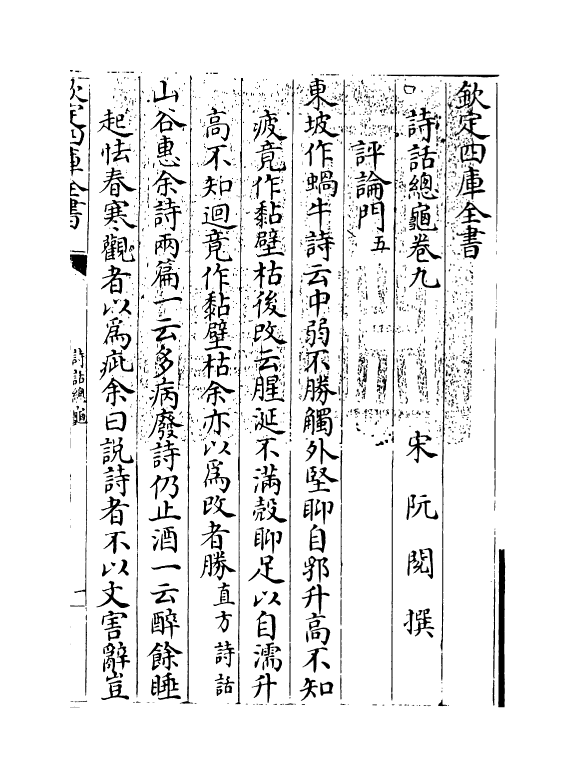 欽定四庫全書
詩話總龜卷九
宋 阮閱 撰
評論門五
東坡作蝸牛詩云中弱不勝觸外堅聊自郛升高不知
疲竟作黏壁枯後改云腥涎不滿殻聊足以自濡升
高不知迴竟作黏壁枯余亦以為改者勝直方詩話
山谷惠余詩兩篇一云多病廢詩仍止酒一云醉餘睡
起怯春寒觀者以為疵余曰說詩者不以文害辭豈
欽定四庫全書
詩話總龜